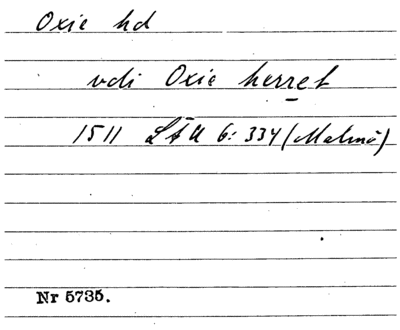 Oxie hd
vdi Oxie herret
1511 LÄU 6: 334 (Malmö)
Nr 5735.